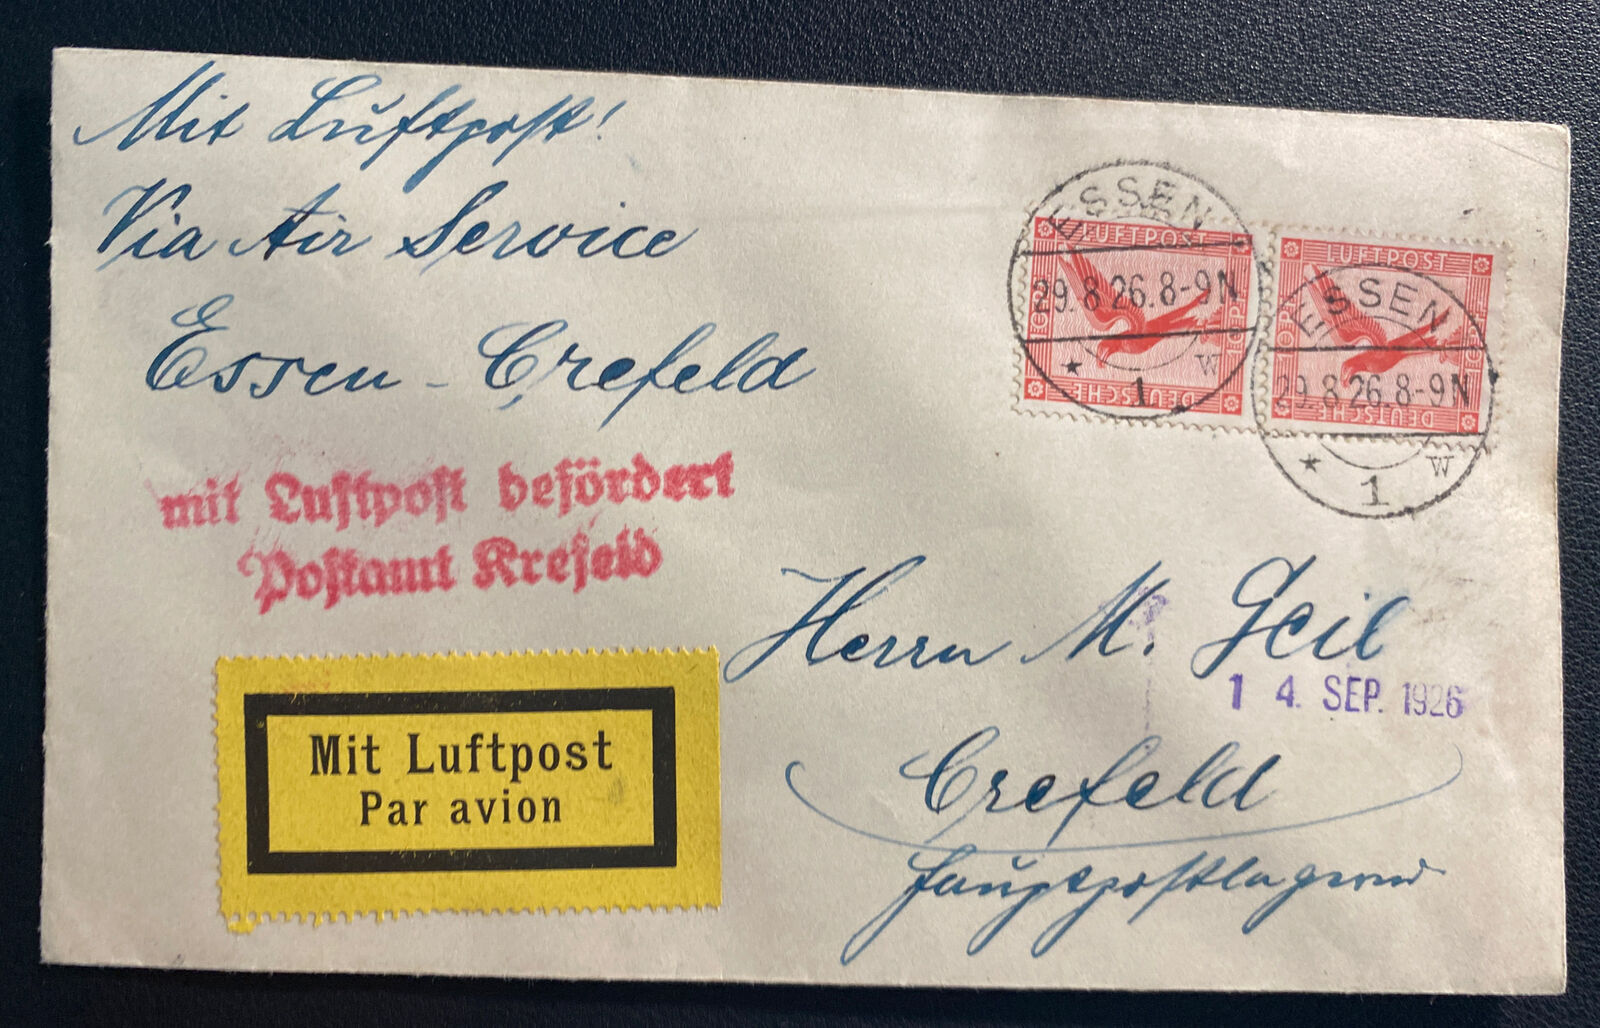 Mit Luftpost!
Via Air Service
Essen - Crefeld
mit Luftpost befördert
Postamt Krefeld
Mit Luftpost
Par avion
ESSEN
29.8.26.8-9N
* 1 w
LUFTPOST
DEUTSCHE
ESSEN
29.8.26.8-9N
* 1 w
LUFTPOST
DEUTSCHE
Herrn M. Geil
14. SEP. 1926
Crefeld
hauptpostlagernd